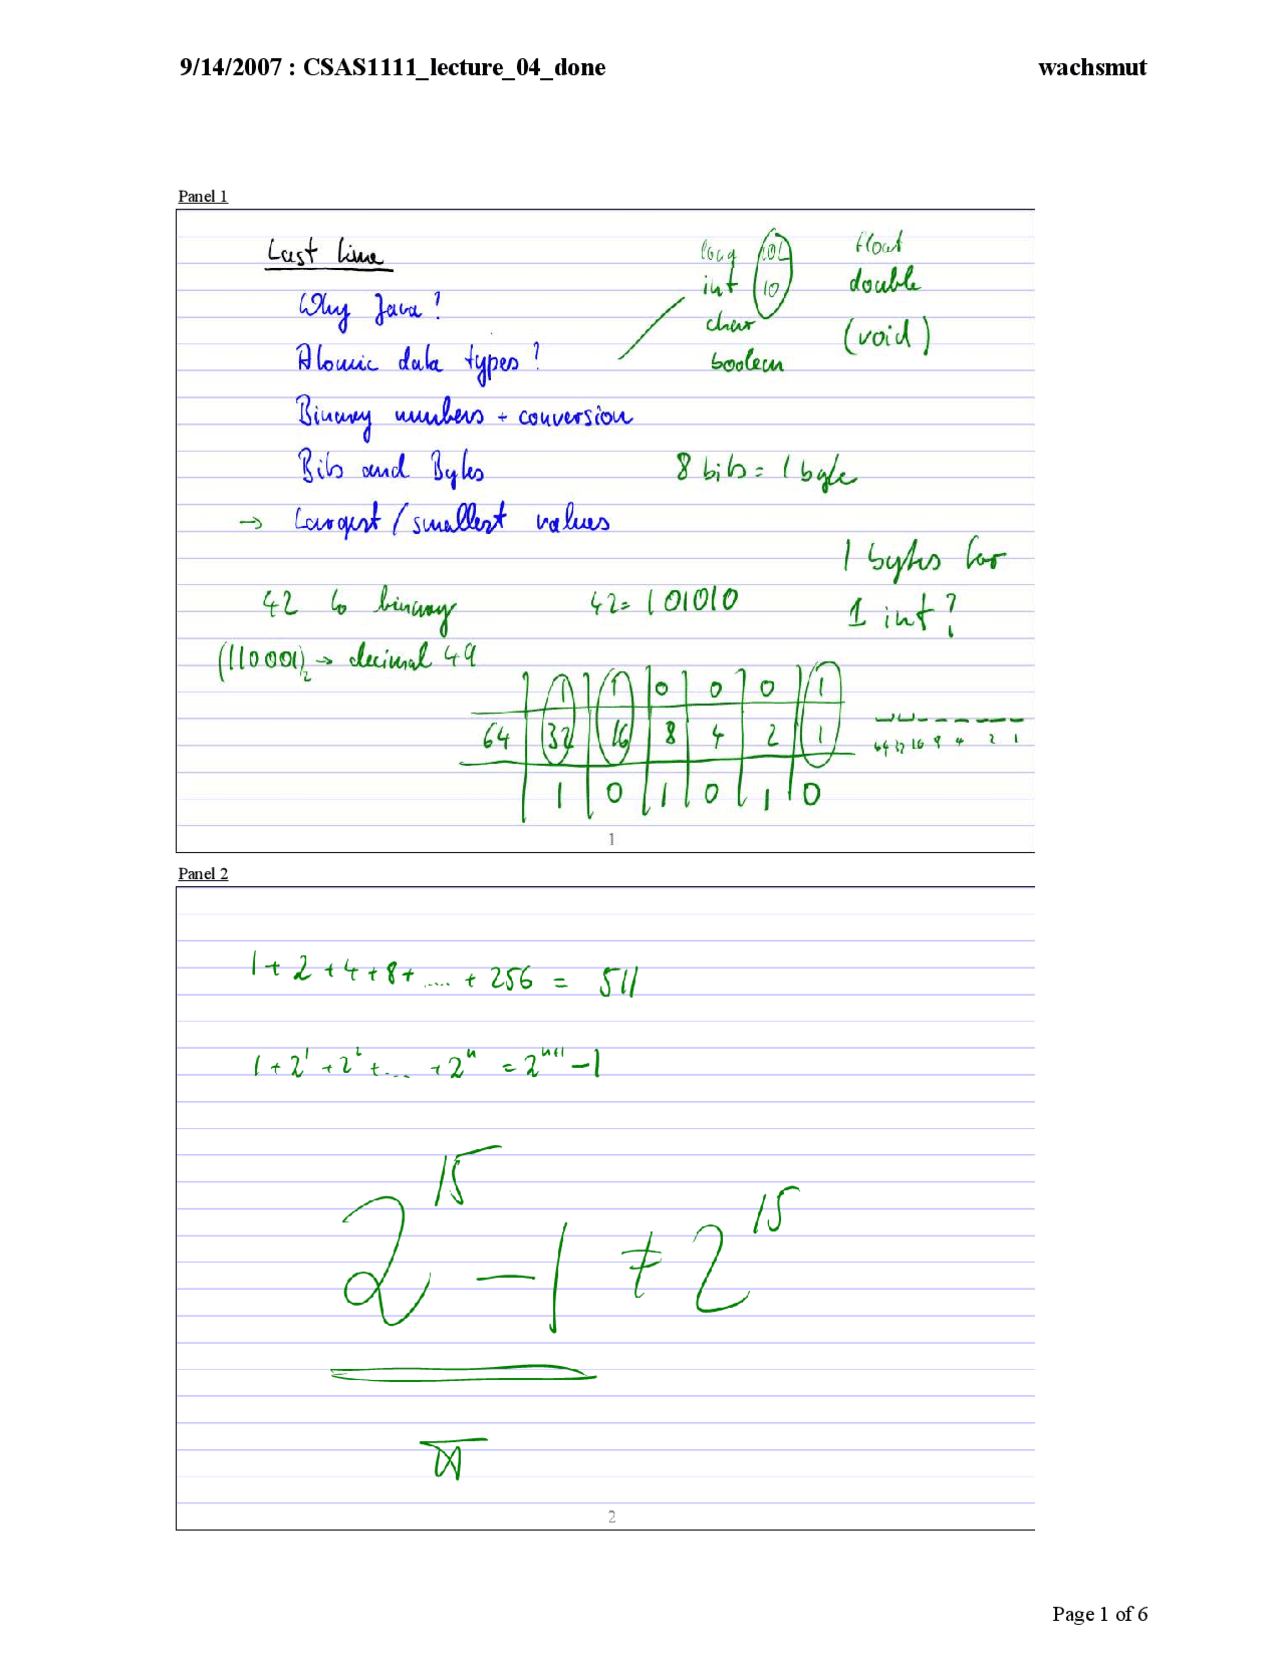 9/14/2007 : CSAS1111_lecture_04_done wachsmut
Panel 1
Last time
Why Java?
Atomic data types?
Binary numbers + conversion
Bits and Bytes
→ Largest / smallest values
long 10L float
int 10 double
char (void)
boolean
8 bits = 1 byte
1 bytes for
1 int?
42 to binary 42 = 101010
(110001)₂ → decimal 49
1 1 0 0 0 1
64 32 16 8 4 2 1
1 0 1 0 1 0
64 32 16 8 4 2 1
1
Panel 2
1 + 2 + 4 + 8 + .... + 256 = 511
1 + 2¹ + 2² + .... + 2ⁿ = 2ⁿ⁺¹ - 1
2¹⁵ - 1 ≠ 2¹⁵
2
Page 1 of 6